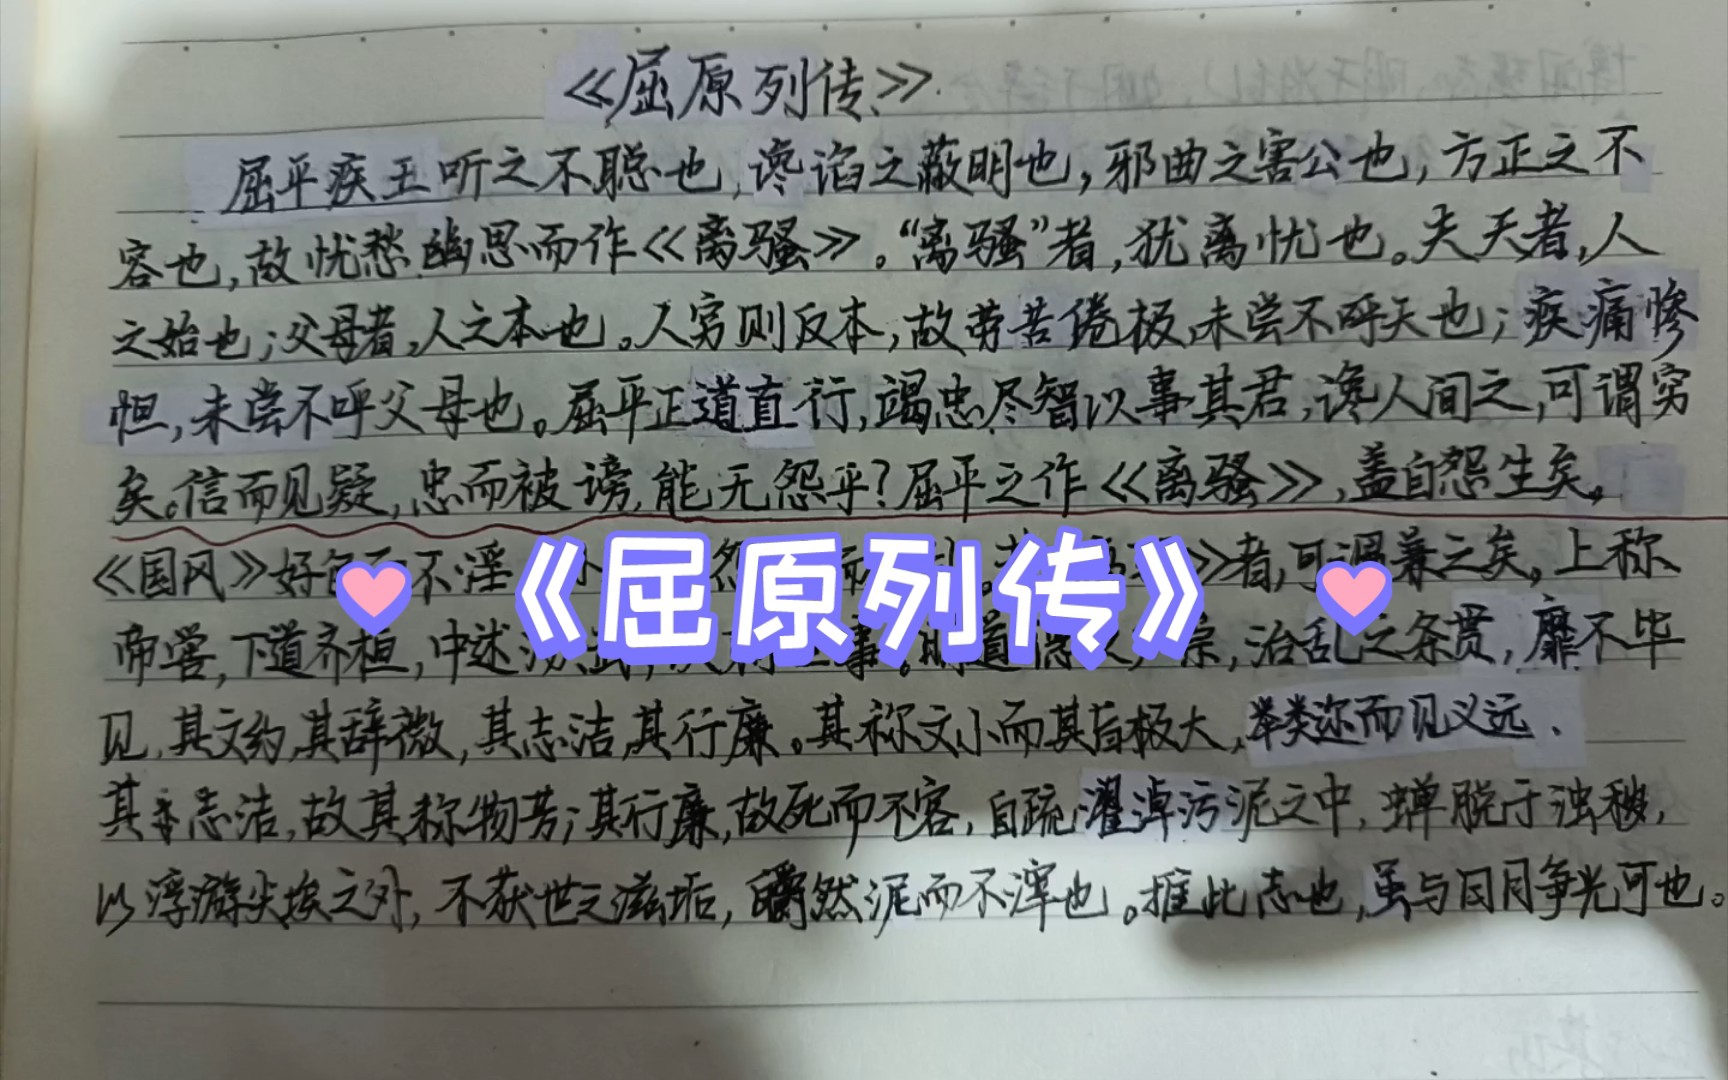 《屈原列传》
屈平疾王听之不聪也,谗谄之蔽明也,邪曲之害公也,方正之不
容也,故忧愁幽思而作《离骚》。“离骚”者,犹离忧也。夫天者,人
之始也;父母者,人之本也。人穷则反本,故劳苦倦极,未尝不呼天也;疾痛惨
怛,未尝不呼父母也。屈平正道直行,竭忠尽智以事其君,谗人间之,可谓穷
矣。信而见疑,忠而被谤,能无怨乎?屈平之作《离骚》,盖自怨生矣。
《国风》好色而不淫 者,可谓兼之矣。上称
《屈原列传》
帝喾,下道齐桓,中述汤 事。明道 崇,治乱之条贯,靡不毕
见,其文约,其辞微,其志洁,其行廉。其称文小而其旨极大,举类迩而见义远.
其志洁,故其称物芳;其行廉,故死而不容,自疏濯淖污泥之中,蝉脱于浊秽,
以浮游尘埃之外,不获世之滋垢,皭然泥而不滓也。推此志也,虽与日月争光可也。